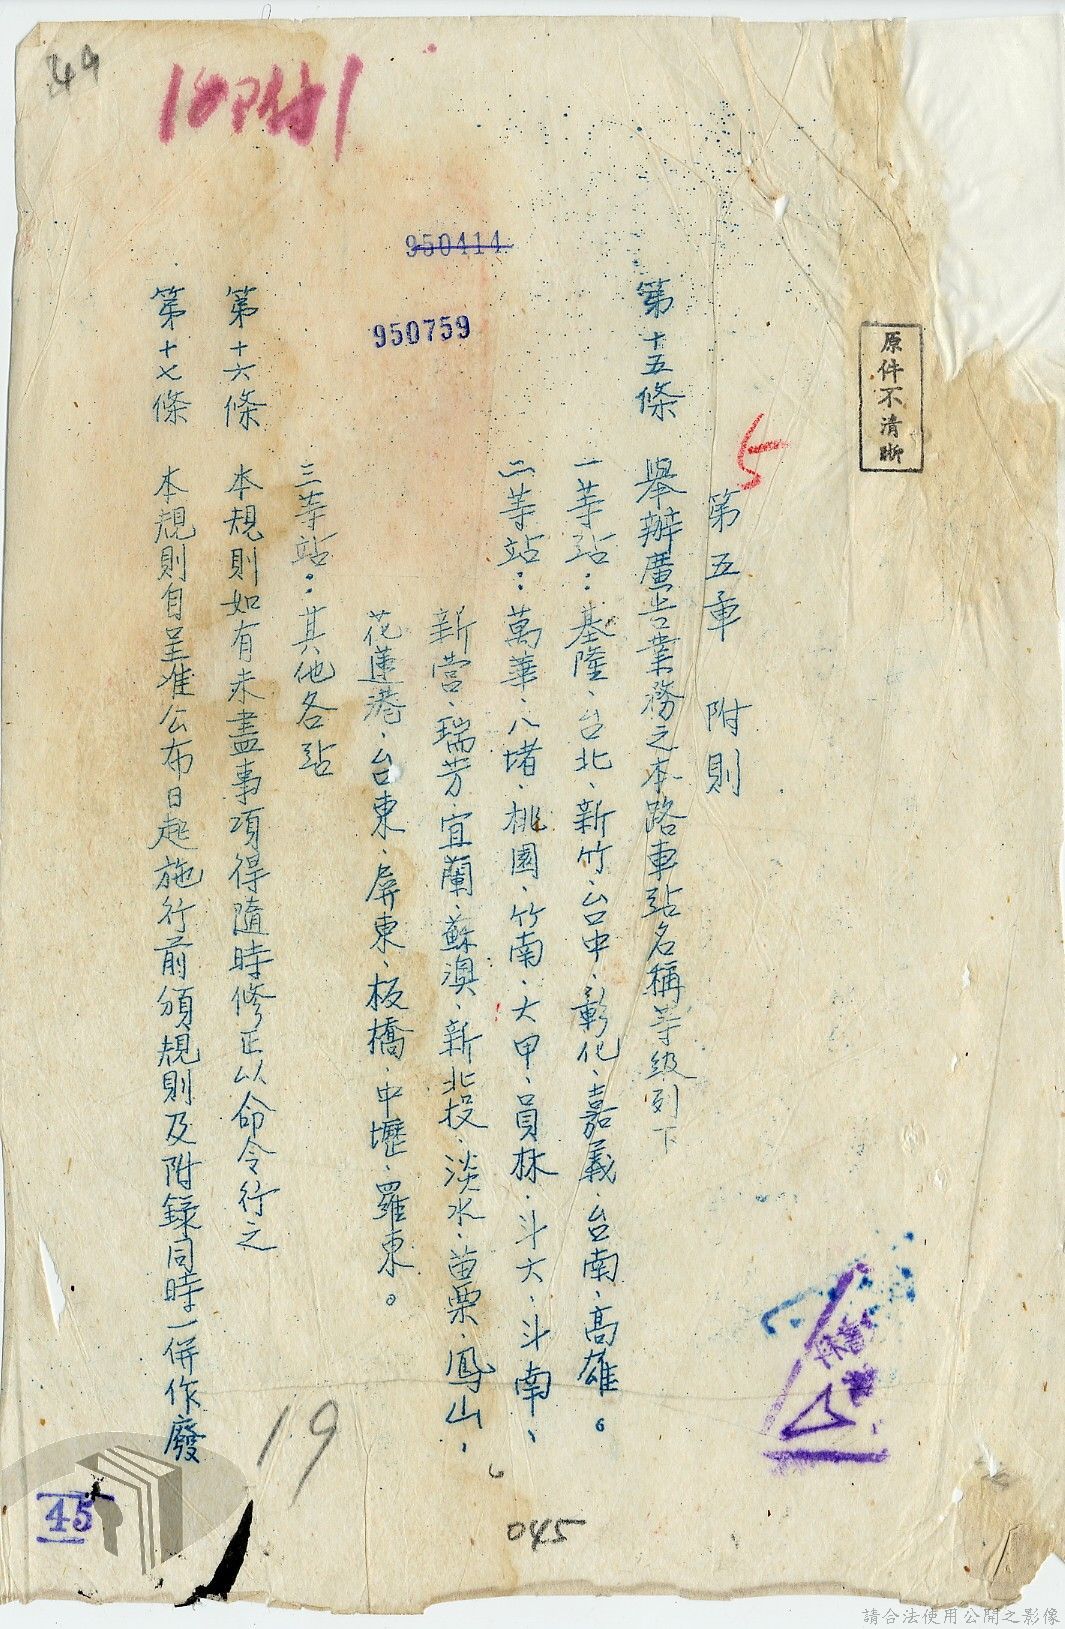 44
18附1
950414
950759
原件不清晰
5
第五章　附則
第十五條　舉辦廣告業務之本路車站名稱等級列下
一等站：基隆、台北、新竹、台中、彰化、嘉義、台南、高雄。
二等站：萬華、八堵、桃園、竹南、大甲、員林、斗六、斗南、
新營、瑞芳、宜蘭、蘇澳、新北投、淡水、苗栗、鳳山、
花蓮港、台東、屏東、板橋、中壢、羅東。
三等站：其他各站
第十六條　本規則如有未盡事項得隨時修正以命令行之
第十七條　本規則自呈准公布日起施行前頒規則及附錄同時一併作廢
19
045
45
請合法使用公開之影像